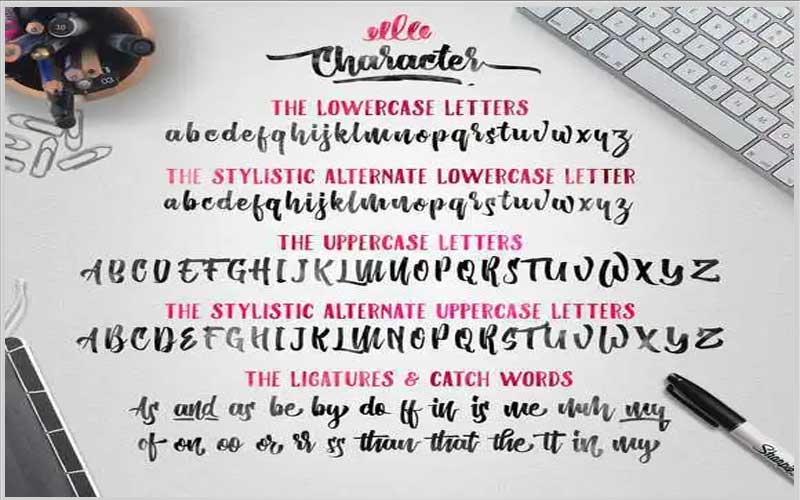 elle
Character
THE LOWERCASE LETTERS
abcdefghijklmnopqrstuvwxyz
THE STYLISTIC ALTERNATE LOWERCASE LETTER
abcdefghijklmnopqrstuvwxyz
THE UPPERCASE LETTERS
ABCDEFGHIJKLMNOPQRSTUVWXYZ
THE STYLISTIC ALTERNATE UPPERCASE LETTERS
ABCDEFGHIJKLMNOPQRSTUVWXYZ
THE LIGATURES & CATCH WORDS
As and as be by do ff in is me my
of on oo or rr ss than that the tt in my
Sharpie